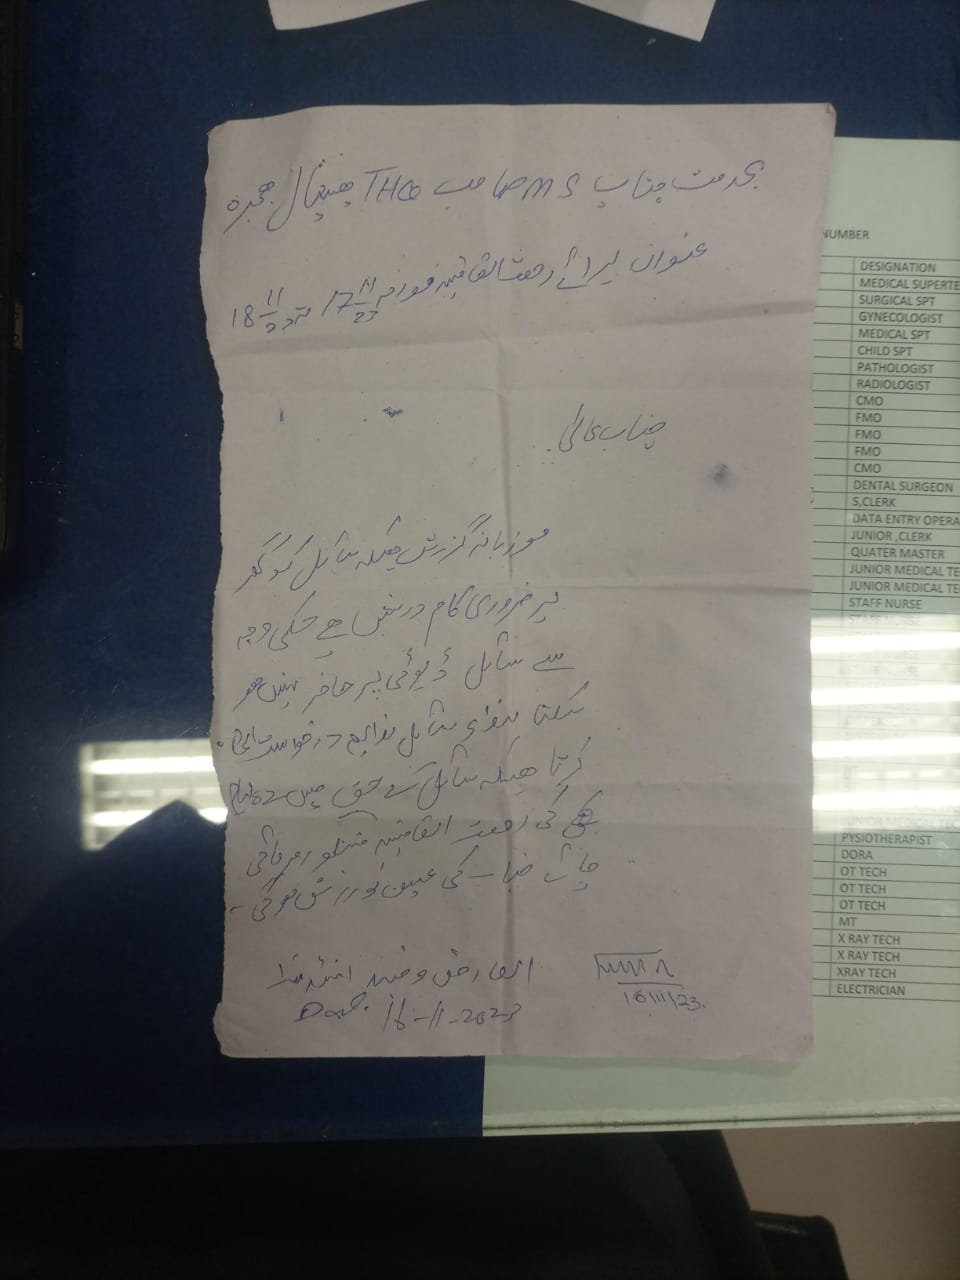 بخدمت جناب MS صاحب THQ ہسپتال حجرہ
عنوان برائے رخصت اتفاقیہ مورخہ 17 11/23 تا 18 11/23
جناب عالی
مودبانہ گزارش ہیکہ سائل کو گھر
پر ضروری کام درپیش ہے جسکی وجہ
سے سائل ڈیوٹی پر حاضر نہیں ہو
سکتا سائل درخواست
کرتا ہیکہ سائل کے حق میں
کی رخصت اتفاقیہ منظور فرمائی
جائے جناب کی عین نوازش ہوگی۔
العارض
Date. 16-11-2023
16/11/23.
NUMBER
DESIGNATION
MEDICAL SUPERTE
SURGICAL SPT
GYNECOLOGIST
MEDICAL SPT
CHILD SPT
PATHOLOGIST
RADIOLOGIST
CMO
FMO
FMO
FMO
CMO
DENTAL SURGEON
S,CLERK
DATA ENTRY OPERA
JUNIOR ,CLERK
QUATER MASTER
JUNIOR MEDICAL TE
JUNIOR MEDICAL TE
STAFF NURSE
STAFF NURSE
JUNIOR MEDICAL TE
PYSIOTHERAPIST
DORA
OT TECH
OT TECH
OT TECH
MT
X RAY TECH
X RAY TECH
XRAY TECH
ELECTRICIAN